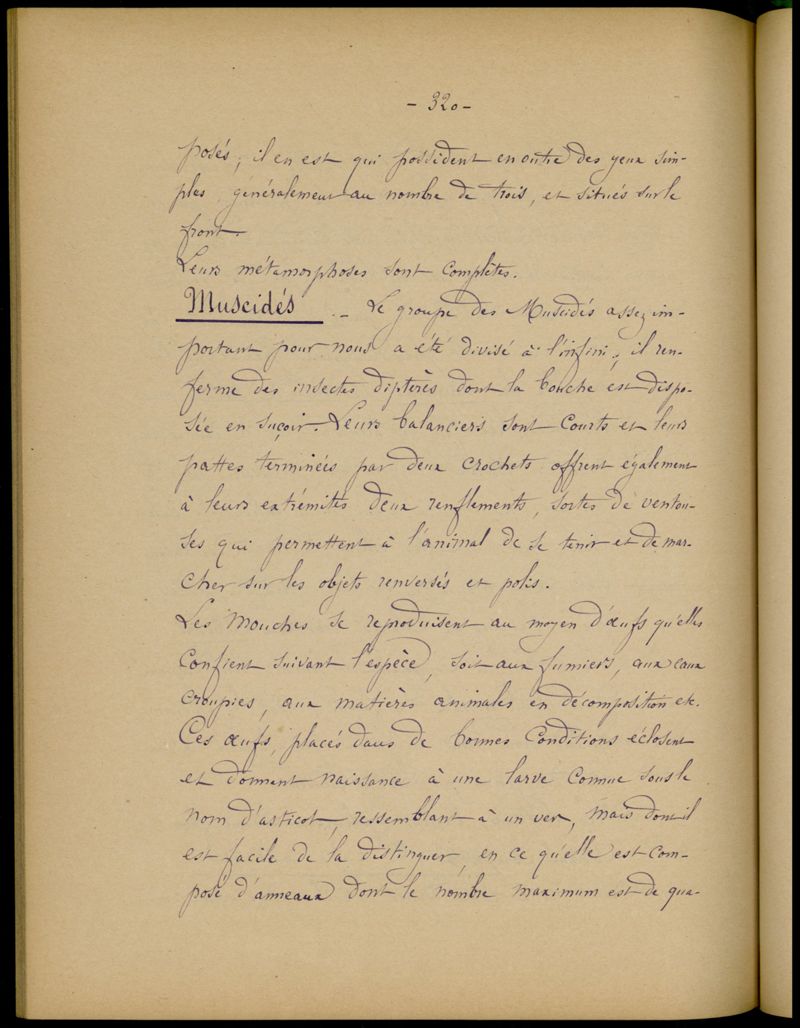 - 320 -
posés, il en est qui possèdent en outre des yeux sim-
ples, généralement au nombre de trois, et situés sur le
front.
Leurs métamorphoses sont complètes.
Muscidés . - Le groupe des Muscidés assez im-
portant pour nous a été divisé à l'infini ; il ren-
ferme des insectes diptères dont la bouche est dispo-
sée en suçoir. Leurs balanciers sont courts et leurs
pattes terminées par deux crochets offrent également
à leurs extrémités deux renflements, sortes de ventou-
ses qui permettent à l'animal de se tenir et de mar-
cher sur les objets renversés et polis.
Les mouches se reproduisent au moyen d'œufs qu'elles
confient suivant l'espèce, soit aux fumiers, aux eaux
croupies, aux matières animales en décomposition etc.
Ces œufs, placés dans de bonnes conditions éclosent
et donnent naissance à une larve connue sous le
nom d'asticot, ressemblant à un ver, mais dont il
est facile de la distinguer, en ce qu'elle est com-
posé d'anneaux dont le nombre maximum est de qua-